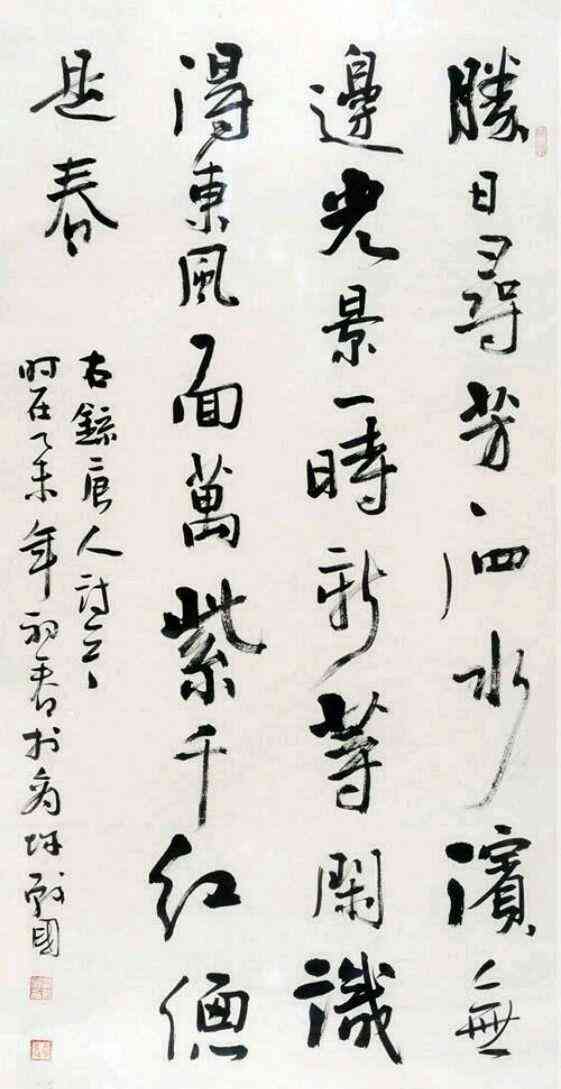 勝日尋芳泗水濱無
邊光景一時新等閑識
得東風面萬紫千紅總
是春
右錄唐人詩
时在乙未年初春於國